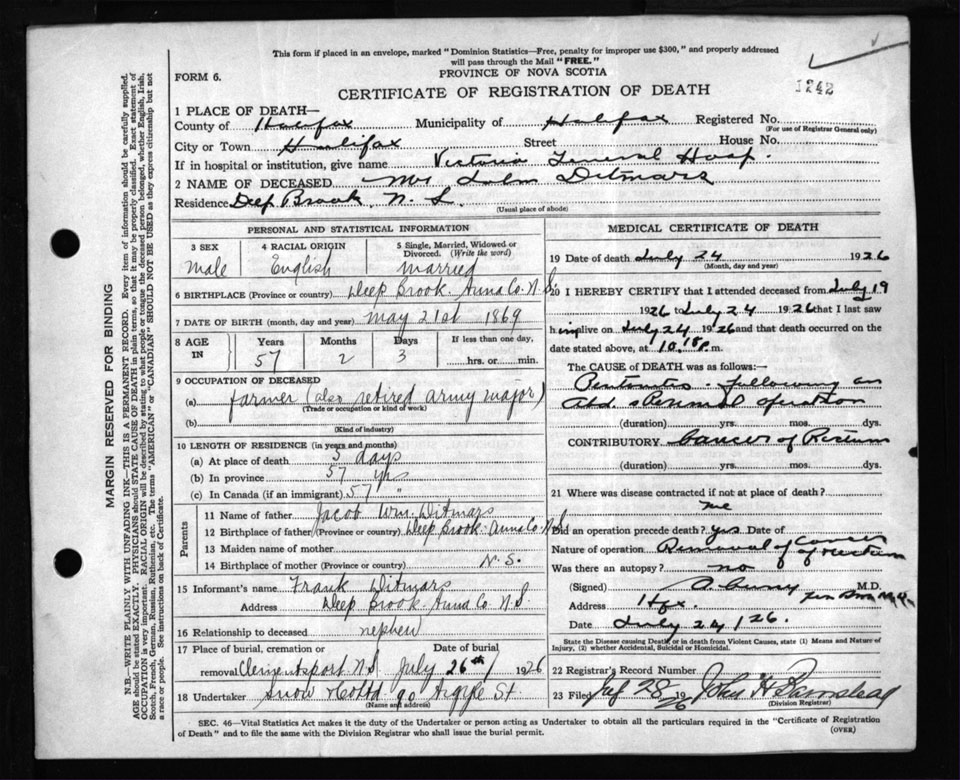 This form if placed in an envelope, marked "Dominion Statistics—Free, penalty for improper use $300," and properly addressed
will pass through the Mail "FREE."
FORM 6.
PROVINCE OF NOVA SCOTIA
1242
CERTIFICATE OF REGISTRATION OF DEATH
1 PLACE OF DEATH—
County of Halifax Municipality of Halifax Registered No.
(For use of Registrar General only)
City or Town Halifax Street House No.
If in hospital or institution, give name Victoria General Hosp.
2 NAME OF DECEASED Mr John Ditmars
Residence Deep Brook, N. S.
(Usual place of abode)
PERSONAL AND STATISTICAL INFORMATION
3 SEX 4 RACIAL ORIGIN 5 Single, Married, Widowed or Divorced. (Write the word)
Male English Married
6 BIRTHPLACE (Province or country) Deep Brook. Anna Co. N.S.
7 DATE OF BIRTH (month, day and year) May 21st 1869
8 AGE IN Years Months Days If less than one day,
57 2 3 hrs. or min.
9 OCCUPATION OF DECEASED
(a) farmer (also retired army major)
(Trade or occupation or kind of work)
(b)
(Kind of industry)
10 LENGTH OF RESIDENCE (in years and months)
(a) At place of death 5 days
(b) In province 57 yrs
(c) In Canada (if an immigrant) 57 "
Parents
11 Name of father Jacob Wm. Ditmars
12 Birthplace of father (Province or country) Deep Brook. Anna Co. N.S.
13 Maiden name of mother
14 Birthplace of mother (Province or country) N. S.
15 Informant's name Frank Ditmars
Address Deep Brook. Anna Co. N.S.
16 Relationship to deceased nephew
17 Place of burial, cremation or removal Date of burial
Clementsport N.S. July 26th 1926
18 Undertaker Snow & Co Ltd 90 Argyle St
(Name and address)
MEDICAL CERTIFICATE OF DEATH
19 Date of death July 24 1926
(Month, day and year)
20 I HEREBY CERTIFY that I attended deceased from July 19
1926 to July 24 1926 that I last saw
him alive on July 24 1926 and that death occurred on the
date stated above, at 10.18 p.m.
The CAUSE OF DEATH was as follows:—
following an
Abd. operation
(duration) yrs. mos. dys.
CONTRIBUTORY Cancer of Rectum
(duration) yrs. mos. dys.
21 Where was disease contracted if not at place of death?
Did an operation precede death? yes Date of
Nature of operation Removal of Cancer of rectum
Was there an autopsy? no
(Signed) M.D.
Address Hfx.
Date July 24/26.
State the Disease causing Death, or in death from Violent Causes, state (1) Means and Nature of
Injury, (2) whether Accidental, Suicidal or Homicidal.
22 Registrar's Record Number
23 Filed July 28 1926 John H Barnstead
(Division Registrar)
SEC. 46—Vital Statistics Act makes it the duty of the Undertaker or person acting as Undertaker to obtain all the particulars required in the "Certificate of Registration
of Death" and to file the same with the Division Registrar who shall issue the burial permit.
(OVER)
MARGIN RESERVED FOR BINDING
N.B.—WRITE PLAINLY WITH UNFADING INK—THIS IS A PERMANENT RECORD. Every item of information should be carefully supplied.
AGE should be stated EXACTLY. PHYSICIANS should STATE CAUSE OF DEATH in plain terms, so that it may be properly classified. Exact statement of
OCCUPATION is very important. RACIAL ORIGIN will be described by stating to what people or tongue the deceased person belonged, whether English, Irish,
Scotch, French, German, Russian, Ruthenian, etc. The terms "AMERICAN" or "CANADIAN" SHOULD NOT BE USED as they express citizenship but not
a race or people. See instructions on back of Certificate.